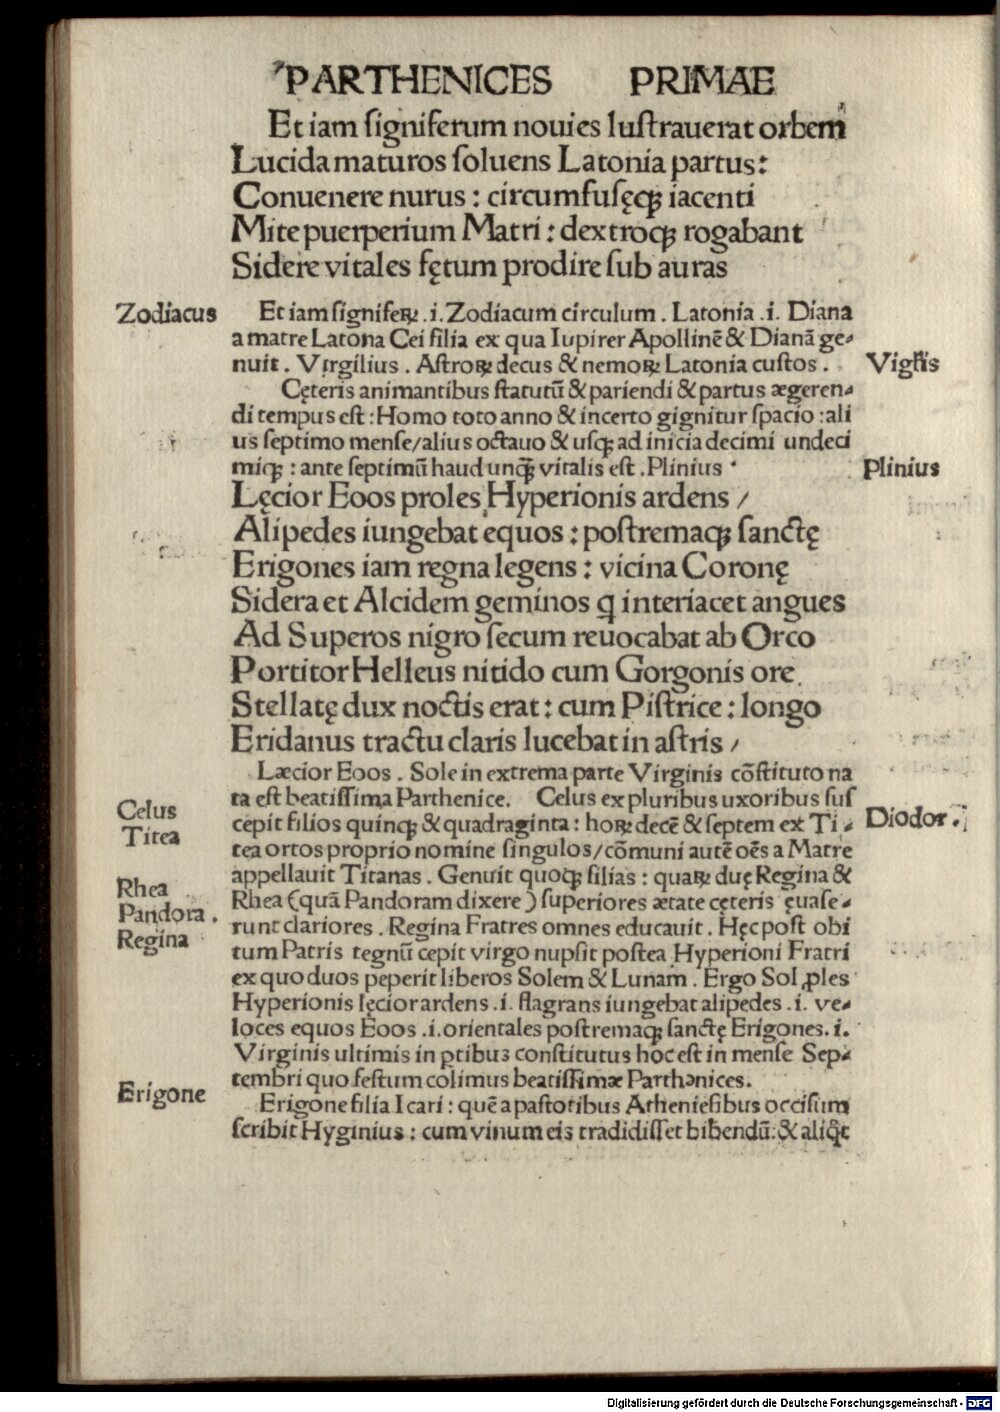 PARTHENICES PRIMAE
Et iam ſigniferum nouies luſtrauerat orbem
Lucida maturos ſoluens Latonia partus:
Conuenere nurus : circumfuſęqꝫ iacenti
Mite puerperium Matri : dextroqꝫ rogabant
Sidere vitales fętum prodire ſub auras
Zodiacus
Et iam ſignifeꝝ .i. Zodiacum circulum . Latonia .i. Diana
a matre Latona Cei filia ex qua Iupirer Apollinē & Dianā ge⸗
nuit . Virgilius . Aſtroꝝ decus & nemoꝝ Latonia cuſtos .
Cęteris animantibus ſtatutū & pariendi & partus ægeren⸗
di tempus eſt : Homo toto anno & incerto gignitur ſpacio : ali
us ſeptimo menſe/alius octauo & uſqꝫ ad inicia decimi undeci
miqꝫ : ante ſeptimū haud unq̄ꝫ vitalis eſt . Plinius .
Plinius
Lęcior Eoos proles Hyperionis ardens /
Alipedes iungebat equos : poſtremaqꝫ ſanctę
Erigones iam regna legens : vicina Coronę
Sidera et Alcidem geminos q interiacet angues
Ad Superos nigro ſecum reuocabat ab Orco
Portitor Helleus nitido cum Gorgonis ore.
Stellatę dux noctis erat : cum Piſtrice : longo
Eridanus tractu claris lucebat in aſtris /
Læcior Eoos . Sole in extrema parte Virginis cōſtituto na
ta eſt beatiſſima Parthenice. Celus ex pluribus uxoribus ſuſ
Celus
cepit filios quinqꝫ & quadraginta : hoꝝ decē & ſeptem ex Ti⸗
Diodor.
Titea
tea ortos proprio nomine ſingulos/cōmuni autē oēs a Matre
appellauit Titanas . Genuit quoqꝫ filias : quaꝝ duę Regina &
Rhea
Rhea (quā Pandoram dixere) ſuperiores ætate cęteris ęuaſe⸗
Pandora .
runt clariores . Regina Fratres omnes educauit . Hęc poſt obi
Regina
tum Patris regnū cepit virgo nupſit poſtea Hyperioni Fratri
ex quo duos peperit liberos Solem & Lunam . Ergo Sol ꝓles
Hyperionis lęcior ardens .i. flagrans iungebat alipedes .i. ve⸗
loces equos Eoos .i. orientales poſtremaqꝫ ſanctę Erigones. i.
Virginis ultimis in ꝑtibuꝫ conſtitutus hoc eſt in menſe Sep⸗
tembri quo feſtum colimus beatiſſimæ Parthenices.
Erigone
Erigone filia Icari : quē a paſtoribus Athenieſibus occiſum
ſcribit Hyginius : cum vinum eis tradidiſſet bibendū: &
Digitalisierung gefördert durch die Deutsche Forschungsgemeinschaft - DFG